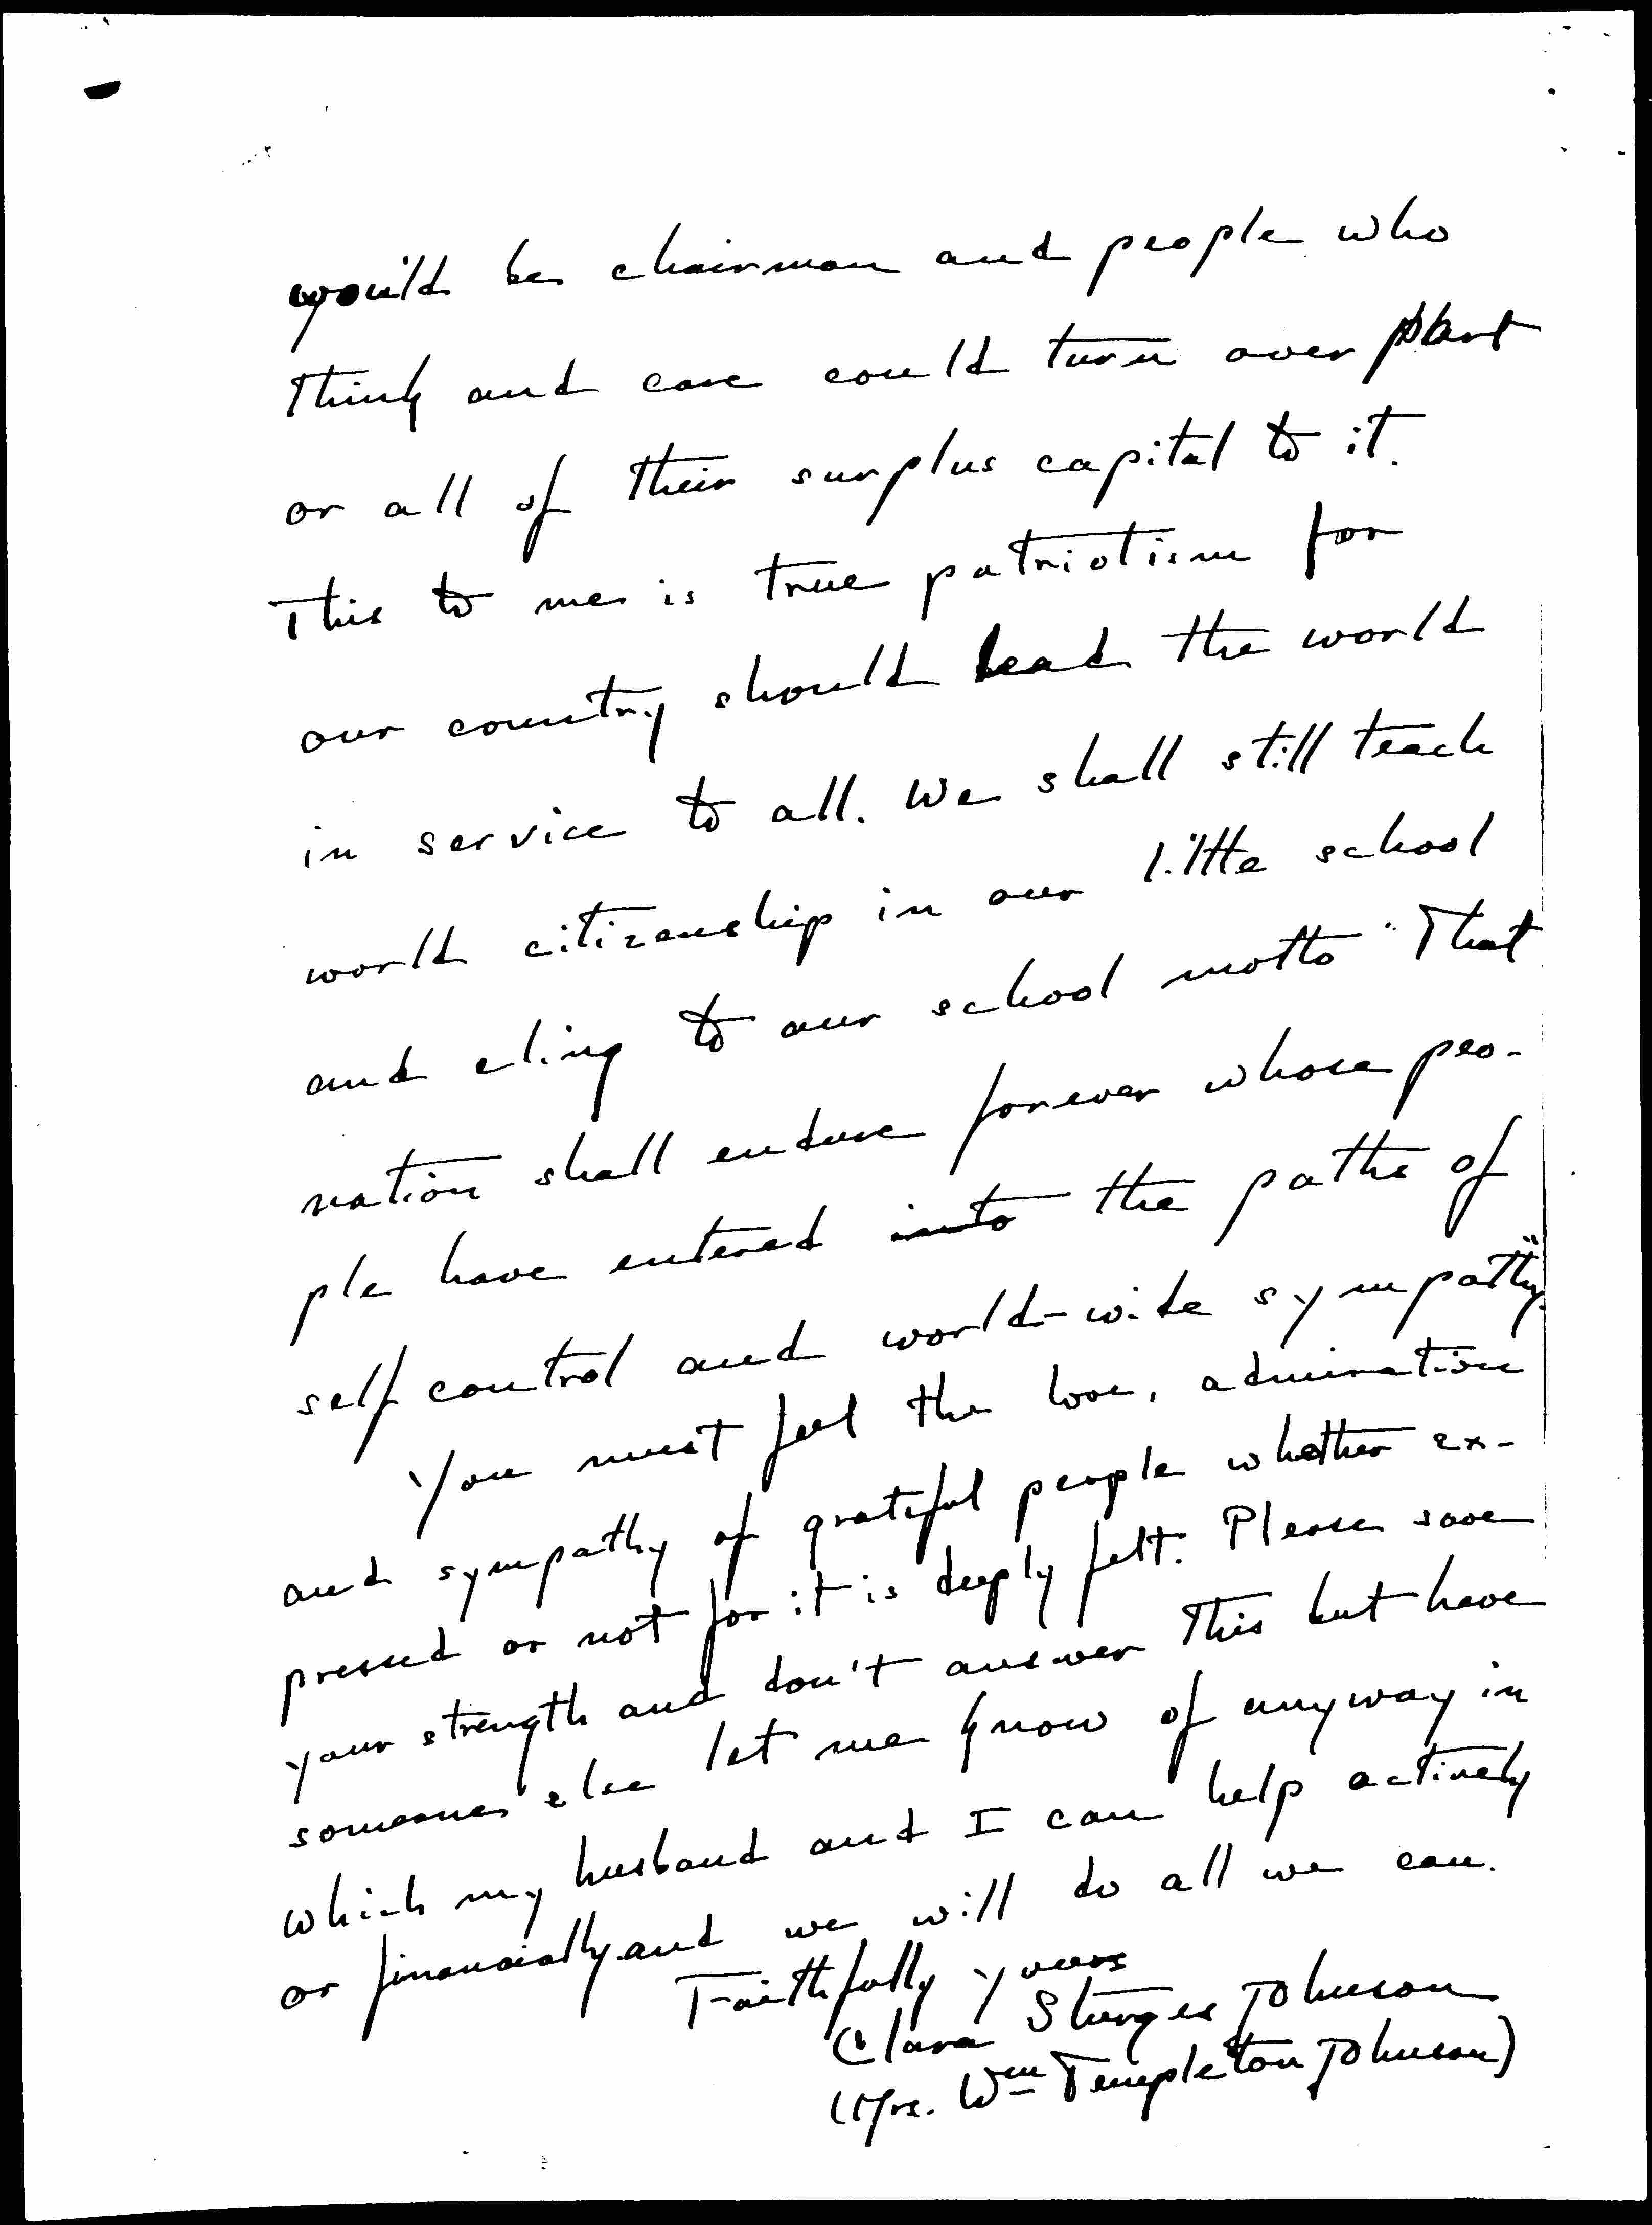 would be chairman and people who
think and care could turn over part
or all of their surplus capital to it.
This to me is true patriotism for
our country should lead the world
in service to all. We shall still teach
world citizenship in our little school
and cling to our school motto "That
nation shall endure forever whose peo-
ple have entered into the paths of
self control and world-wide sympathy."
You must feel the love, admiration
and sympathy of grateful people whether ex-
pressed or not for it is deeply felt. Please save
your strength and don't answer this but have
someone else let me know of anyway in
which my husband and I can help actively
or financially and we will do all we can.
Faithfully yours
Clara Sturges Johnson
(Mrs. Wm Templeton Johnson)